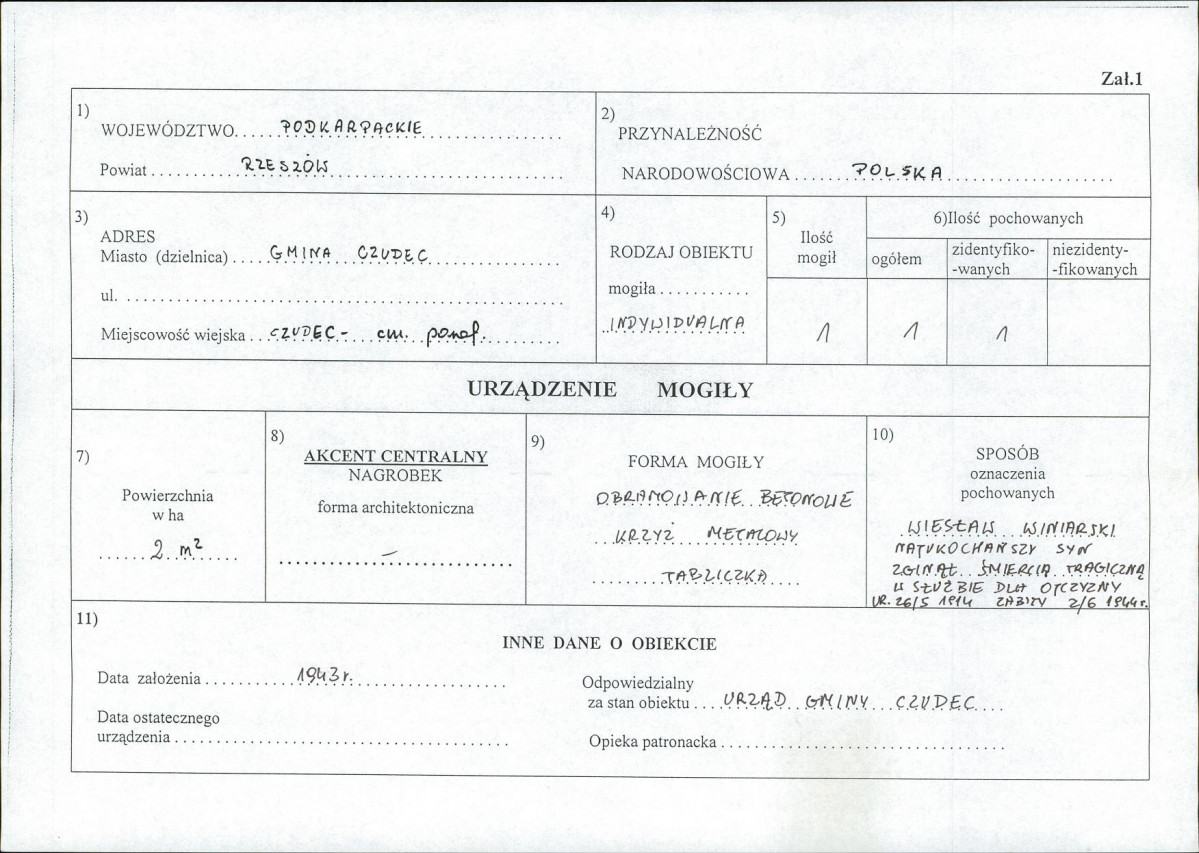 Zał.1
1)
WOJEWÓDZTWO.....PODKARPACKIE
Powiat..........RZESZÓW
2)
PRZYNALEŻNOŚĆ
NARODOWOŚCIOWA......POLSKA
3)
ADRES
Miasto (dzielnica)....GMINA CZUDEC
ul.
Miejscowość wiejska...CZUDEC - cm. paraf.
4)
RODZAJ OBIEKTU
mogiła..........
INDYWIDUALNA
5)
Ilość
mogił
1
6)Ilość pochowanych
ogółem
1
zidentyfiko-
-wanych
1
niezidenty-
-fikowanych
URZĄDZENIE MOGIŁY
7)
Powierzchnia
w ha
2 m²
8)
AKCENT CENTRALNY
NAGROBEK
forma architektoniczna
–
9)
FORMA MOGIŁY
OBRAMOWANIE BETONOWE
KRZYŻ METALOWY
TABLICZKA
10)
SPOSÓB
oznaczenia
pochowanych
WIESŁAW WINIARSKI
NAJUKOCHAŃSZY SYN
ZGINĄŁ ŚMIERCIĄ TRAGICZNĄ
W SŁUŻBIE DLA OJCZYZNY
UR. 26/5 1914 ZABITY 2/6 1944r.
11)
INNE DANE O OBIEKCIE
Data założenia..........1943r.
Data ostatecznego
urządzenia
Odpowiedzialny
za stan obiektu....URZĄD GMINY CZUDEC
Opieka patronacka